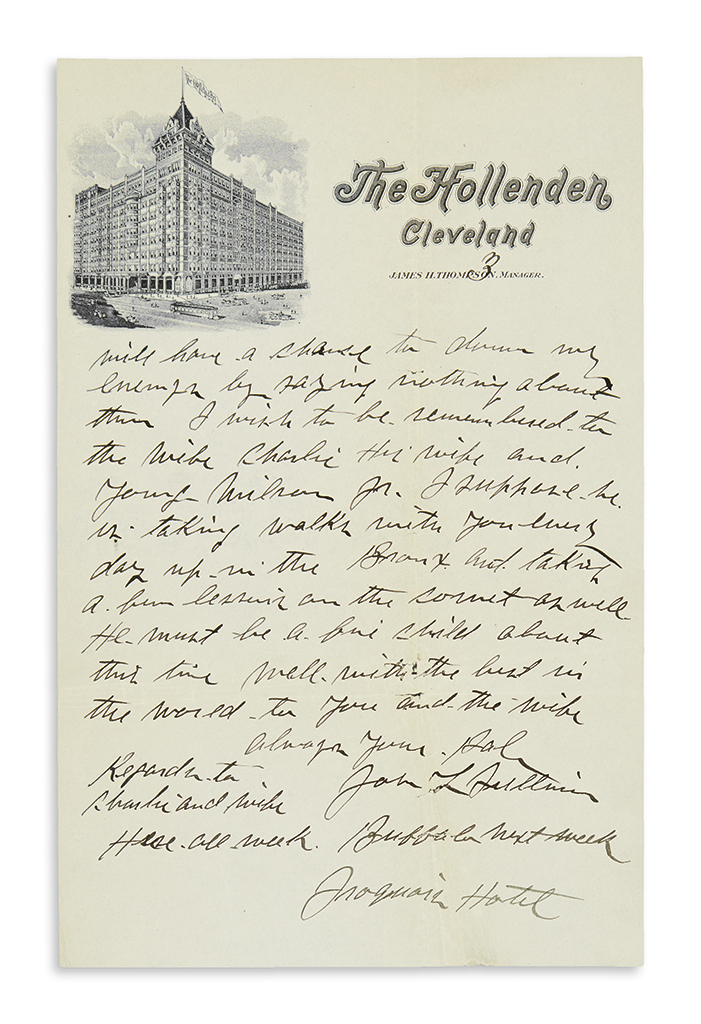 The Hollenden
Cleveland
3
JAMES H. THOMPSON, MANAGER.
will have a chanse to down my
by saying nothing about
them I wish to be remembered to
the Wife Charlie His wife and.
Young Wilson Jr. I suppose he.
is taking walks with You every
day up in the Bronx and taking
a few lessons on the cornet as well.
He must be a fine child about
this time Well with the best in
the world to You and the wife
always Your Pal
John L Sullivan
Regards to
Charlie and wife
Here all week. Buffalo next week
Iroquois Hotel